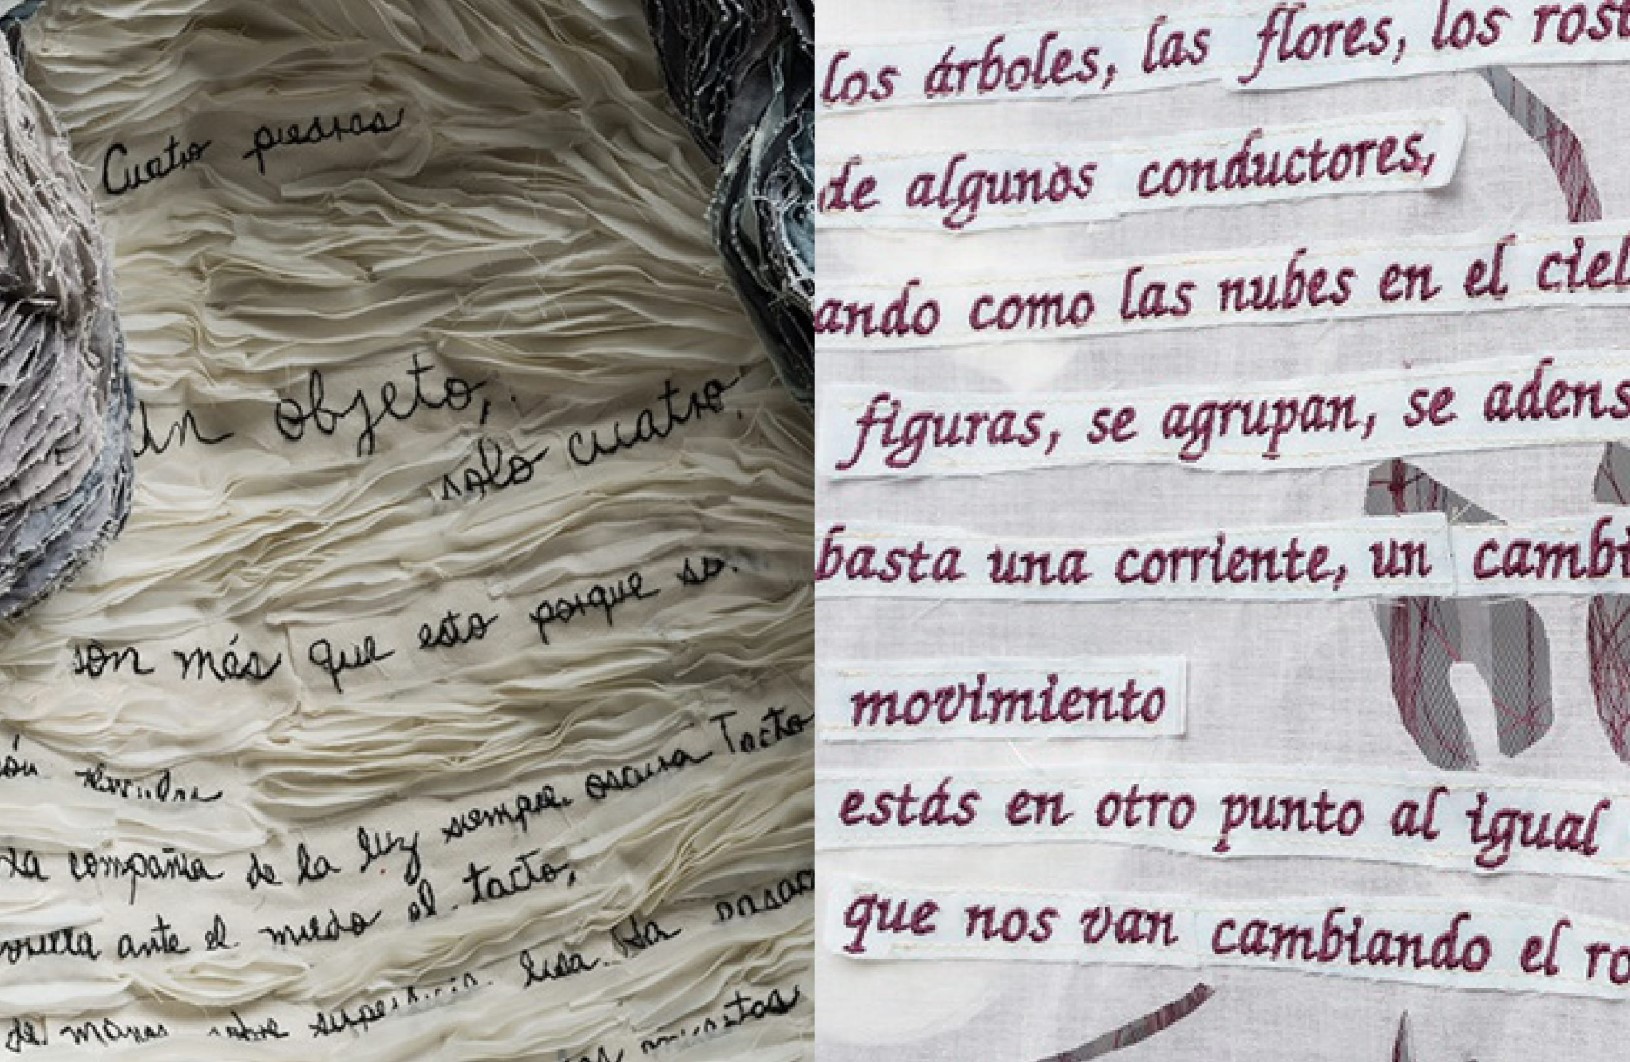 Cuatro piedras
un objeto,
solo cuatro.
son más que esto porque so.
ón
La compañía de la luz siempre. oscura Tacto
ante el miedo al tacto,
de manos sobre superficie. lisa. La
los árboles, las flores, los rost
de algunos conductores,
ando como las nubes en el ciel
figuras, se agrupan, se adens
basta una corriente, un cambi
movimiento
estás en otro punto al igual
que nos van cambiando el ro